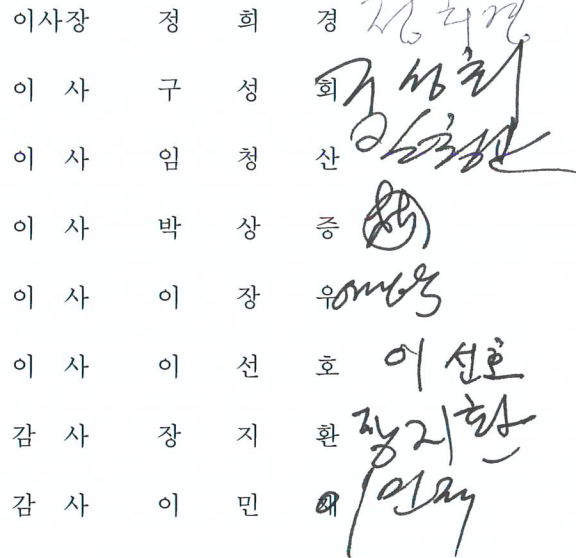 이사장 정 희 경 정희경
이 사 구 성 회 구성회
이 사 임 청 산 임청산
이 사 박 상 증
이 사 이 장 우 이장우
이 사 이 선 호 이선호
감 사 장 지 환 장지환
감 사 이 민 재 이민재